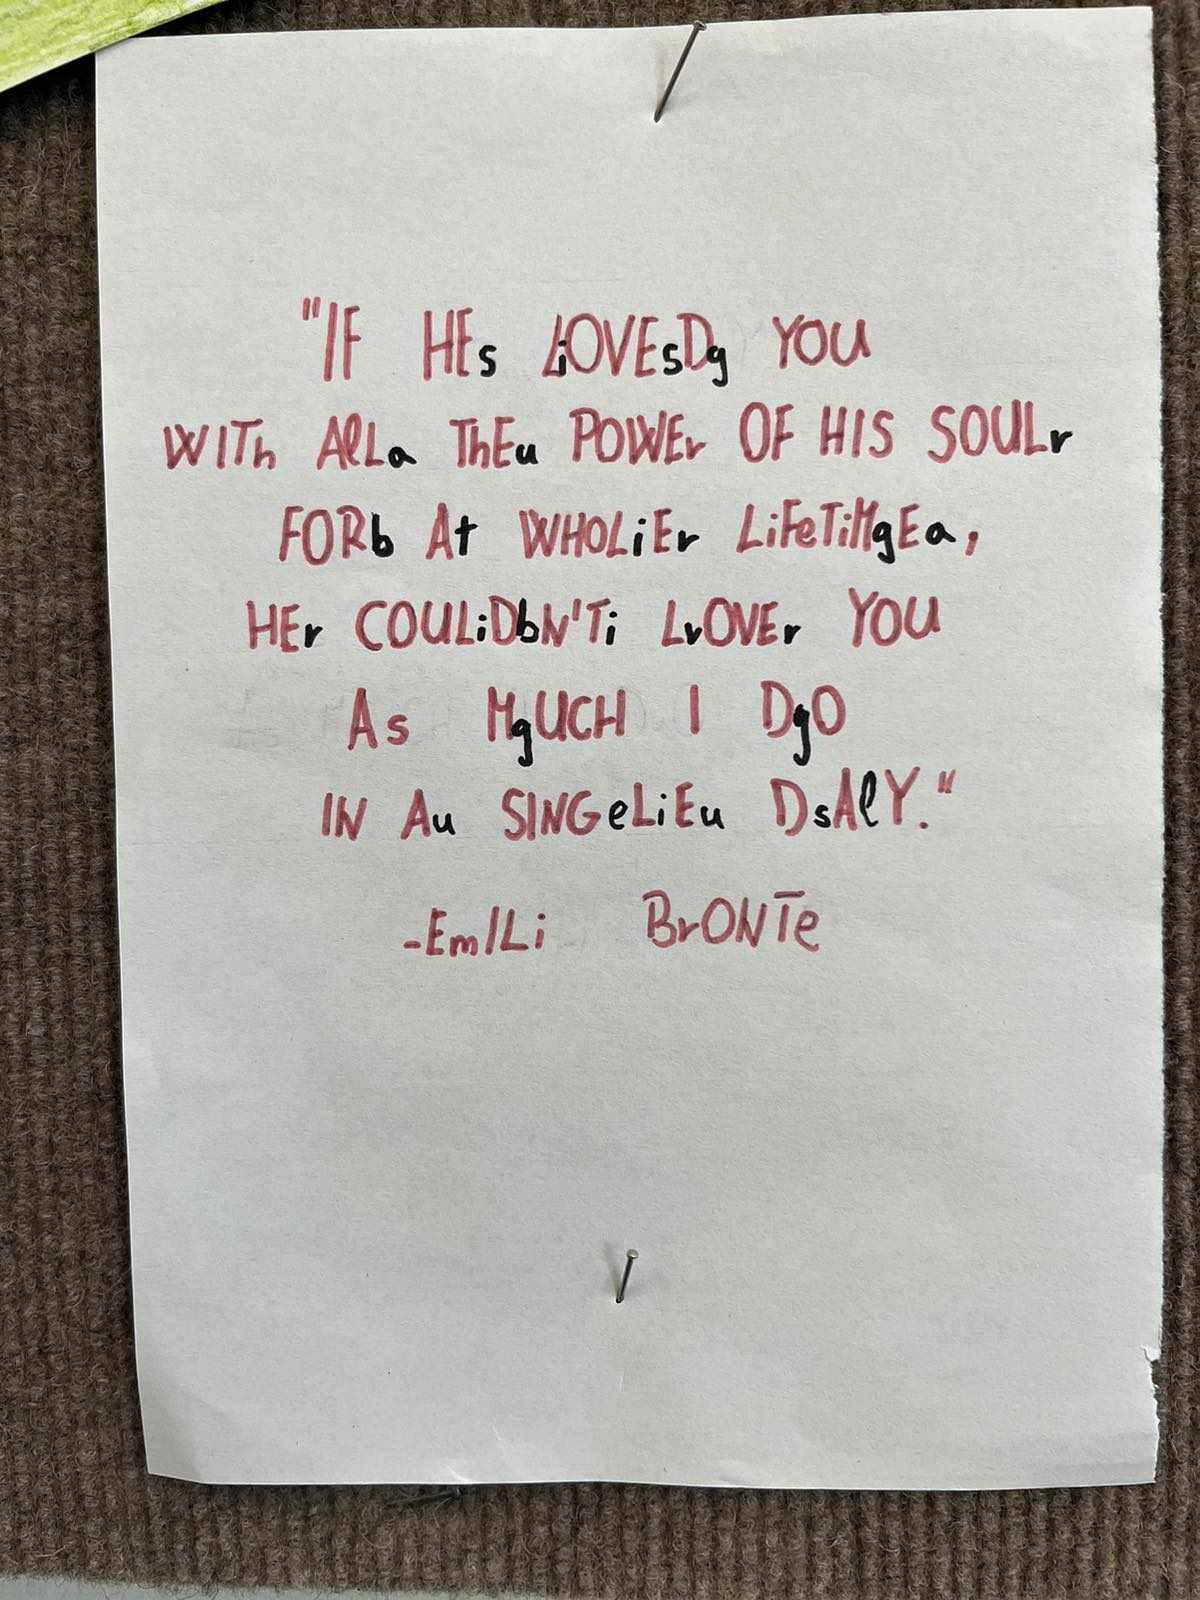 "IF HEs LiOVEsDg YOU
WITh AlLa ThEu POWEr OF HIS SOULr
FORb At WHOLiEr LiFeTiMgEa,
HEr COULiDbN'Ti LrOVEr YOU
As MgUCH I DgO
IN Au SINGeLiEu DsAlY."
-EmILi BrONTe